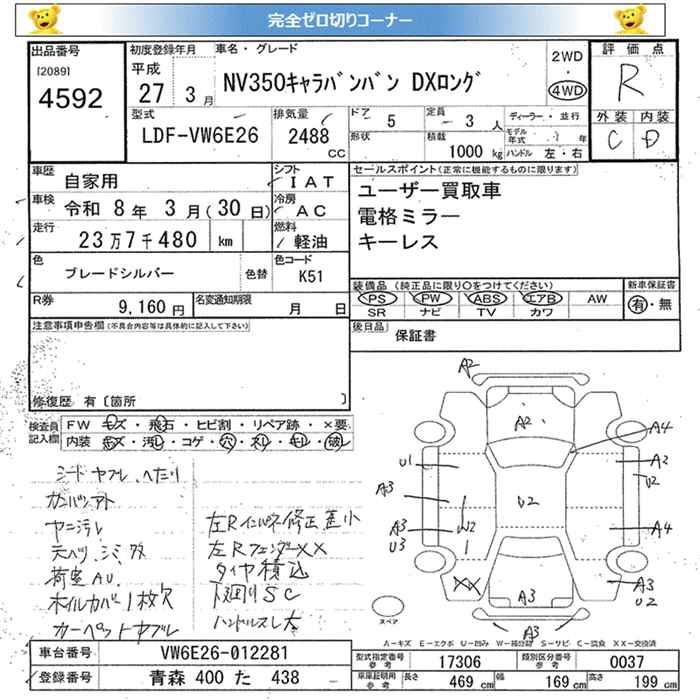 完全ゼロ切りコーナー
出品番号
[2089]
4592
初度登録年月
平成
27 3月
車名・グレード
NV350キャラバンバン DXロング
2WD
・
4WD
評価点
R
外装 内装
C D
型式
LDF-VW6E26
排気量
2488
CC
ドア
5
定員
3 人
ディーラー・並行
モデル年式 年
形状
積載
1000 kg
ハンドル 左・右
車歴
自家用
シフト
IAT
車検
令和 8年 3月(30日)
冷房
AC
走行
23万7千480 km
燃料
軽油
色
ブレードシルバー
色替
色コード
K51
R券
9,160円
名変通知期限
月 日
セールスポイント(正常に機能するものに限ります)
ユーザー買取車
電格ミラー
キーレス
装備品(純正品に限り○をつけてください)
PS PW ABS エアB AW
SR ナビ TV カワ
新車保証書
有・無
後日品
保証書
注意事項申告欄(不具合内容等は具体的に記入して下さい)
修復歴 有〔箇所 〕
検査員記入欄
FW キズ・飛石・ヒビ割・リペア跡・×要
内装 キズ・汚レ・コゲ・穴・スレ・モレ・破レ
シートヤブレ、ヘたり
ガンバツアト
ヤニ汚レ
天ヘツ、シミ、タタ
荷室AU.
ホイルカバー1枚欠
カーペットヤブレ
左Rインパネ修正差小
左RフェンダーXX
タイヤ積込
下廻りSC
ハンドルスレ大
A2
A2
A4
U1
A2
U2
A3
U2
A3
U3
W2
A4
XX
A3
A3
U2
A3
スペア
A-キズ E-エクボ U-凹み W-補修跡 S-サビ C-腐食 XX-交換済
車台番号
VW6E26-012281
登録番号
青森 400 た 438
型式指定番号
参考
17306
類別区分番号
参考
0037
車庫証明用
参考
長さ
469 cm
幅
169 cm
高さ
199 cm